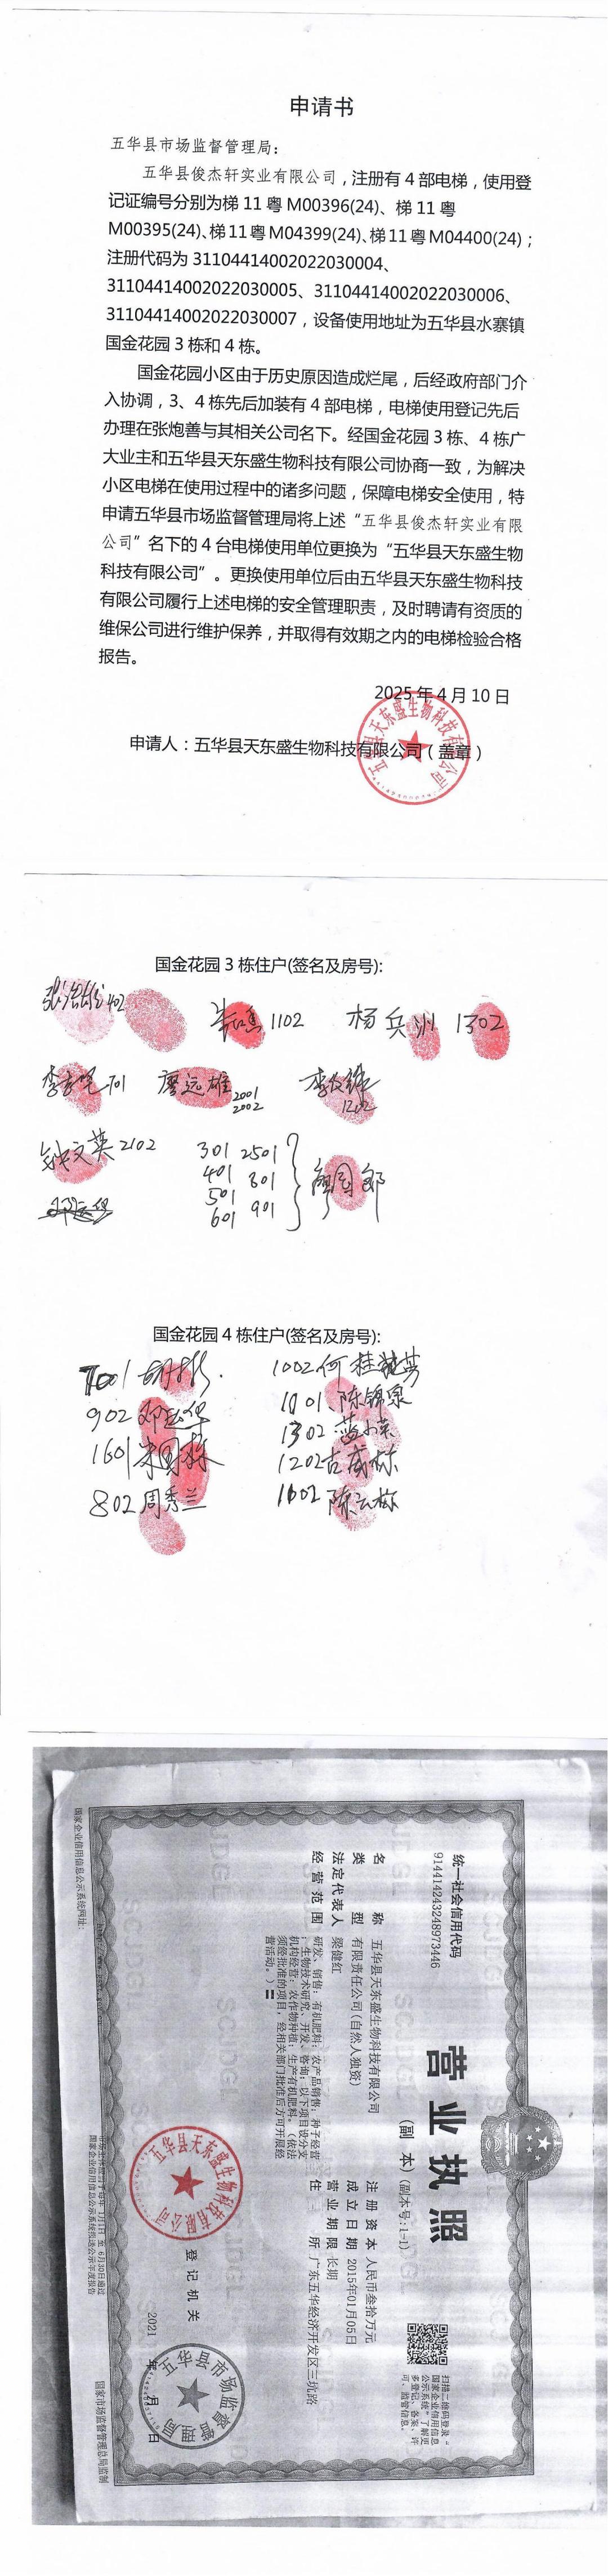 申请书
五华县市场监督管理局：
五华县俊杰轩实业有限公司，注册有 4 部电梯，使用登
记证编号分别为梯 11 粤 M00396(24)、梯 11 粤
M00395(24)、梯 11 粤 M04399(24)、梯 11 粤 M04400(24)；
注册代码为 31104414002022030004、
31104414002022030005、31104414002022030006、
31104414002022030007，设备使用地址为五华县水寨镇
国金花园 3 栋和 4 栋。
国金花园小区由于历史原因造成烂尾，后经政府部门介
入协调，3、4 栋先后加装有 4 部电梯，电梯使用登记先后
办理在张炮善与其相关公司名下。经国金花园 3 栋、4 栋广
大业主和五华县天东盛生物科技有限公司协商一致，为解决
小区电梯在使用过程中的诸多问题，保障电梯安全使用，特
申请五华县市场监督管理局将上述“五华县俊杰轩实业有限
公司”名下的 4 台电梯使用单位更换为“五华县天东盛生物
科技有限公司”。更换使用单位后由五华县天东盛生物科技
有限公司履行上述电梯的安全管理职责，及时聘请有资质的
维保公司进行维护保养，并取得有效期之内的电梯检验合格
报告。
2025 年 4 月 10 日
申请人：五华县天东盛生物科技有限公司（盖章）
五华县天东盛生物科技有限公司
国金花园 3 栋住户(签名及房号):
402 1102 杨兵洲 1302
701 廖远雄 2001
2002
1202
钟文英 2102 301 2501
401 801
501 901
601
廖国郎
国金花园 4 栋住户(签名及房号):
1001 1002 何桂英
902 邓运华 1901 陈锦泉
1601 1302 蓝小英
802 周秀兰 1202 古南栋
1602 陈云栋
统一社会信用代码
914414243248973446
营业执照
(副 本) (副本号:1-1)
扫描二维码登录“
国家企业信用信息
公示系统”了解更
多登记、备案、许
可、监管信息。
名 称 五华县天东盛生物科技有限公司
类 型 有限责任公司(自然人独资)
法定代表人 梁健红
经营范围 研发、销售：有机肥料；农产品销售；种子经营
；生物技术研究、开发、咨询；以下项目设分支
机构经营：农作物种植；生产有机肥料。（依法
须经批准的项目，经相关部门批准后方可开展经
营活动。）
注册资本 人民币叁拾万元
成立日期 2015年01月05日
营业期限 长期
住 所 广东五华经济开发区三坑路
五华县天东盛生物科技有限公司
登记机关
五华县市场监督管理局
2021 年 月 日
国家企业信用信息公示系统网址：
市场主体应当于每年1月1日 至 6月30日通过
国家企业信用信息公示系统报送公示年度报告
国家市场监督管理总局监制